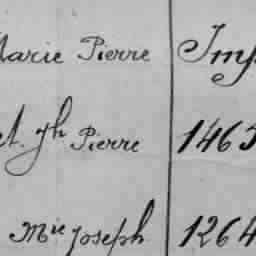 Marie Pierre Imp
et. Jh Pierre 1465
Mie Joseph 1264